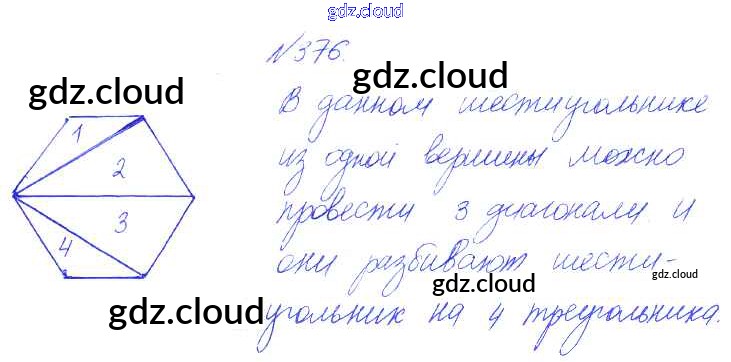 gdz.cloud
№376.
gdz.cloud
gdz.cloud
В данном шестиугольнике
1
2
из одной вершины можно
3
провести 3 диагонали и
4
они разбивают шести-
gdz.cloud
gdz.cloud
gdz.cloud
угольник на 4 треугольника.